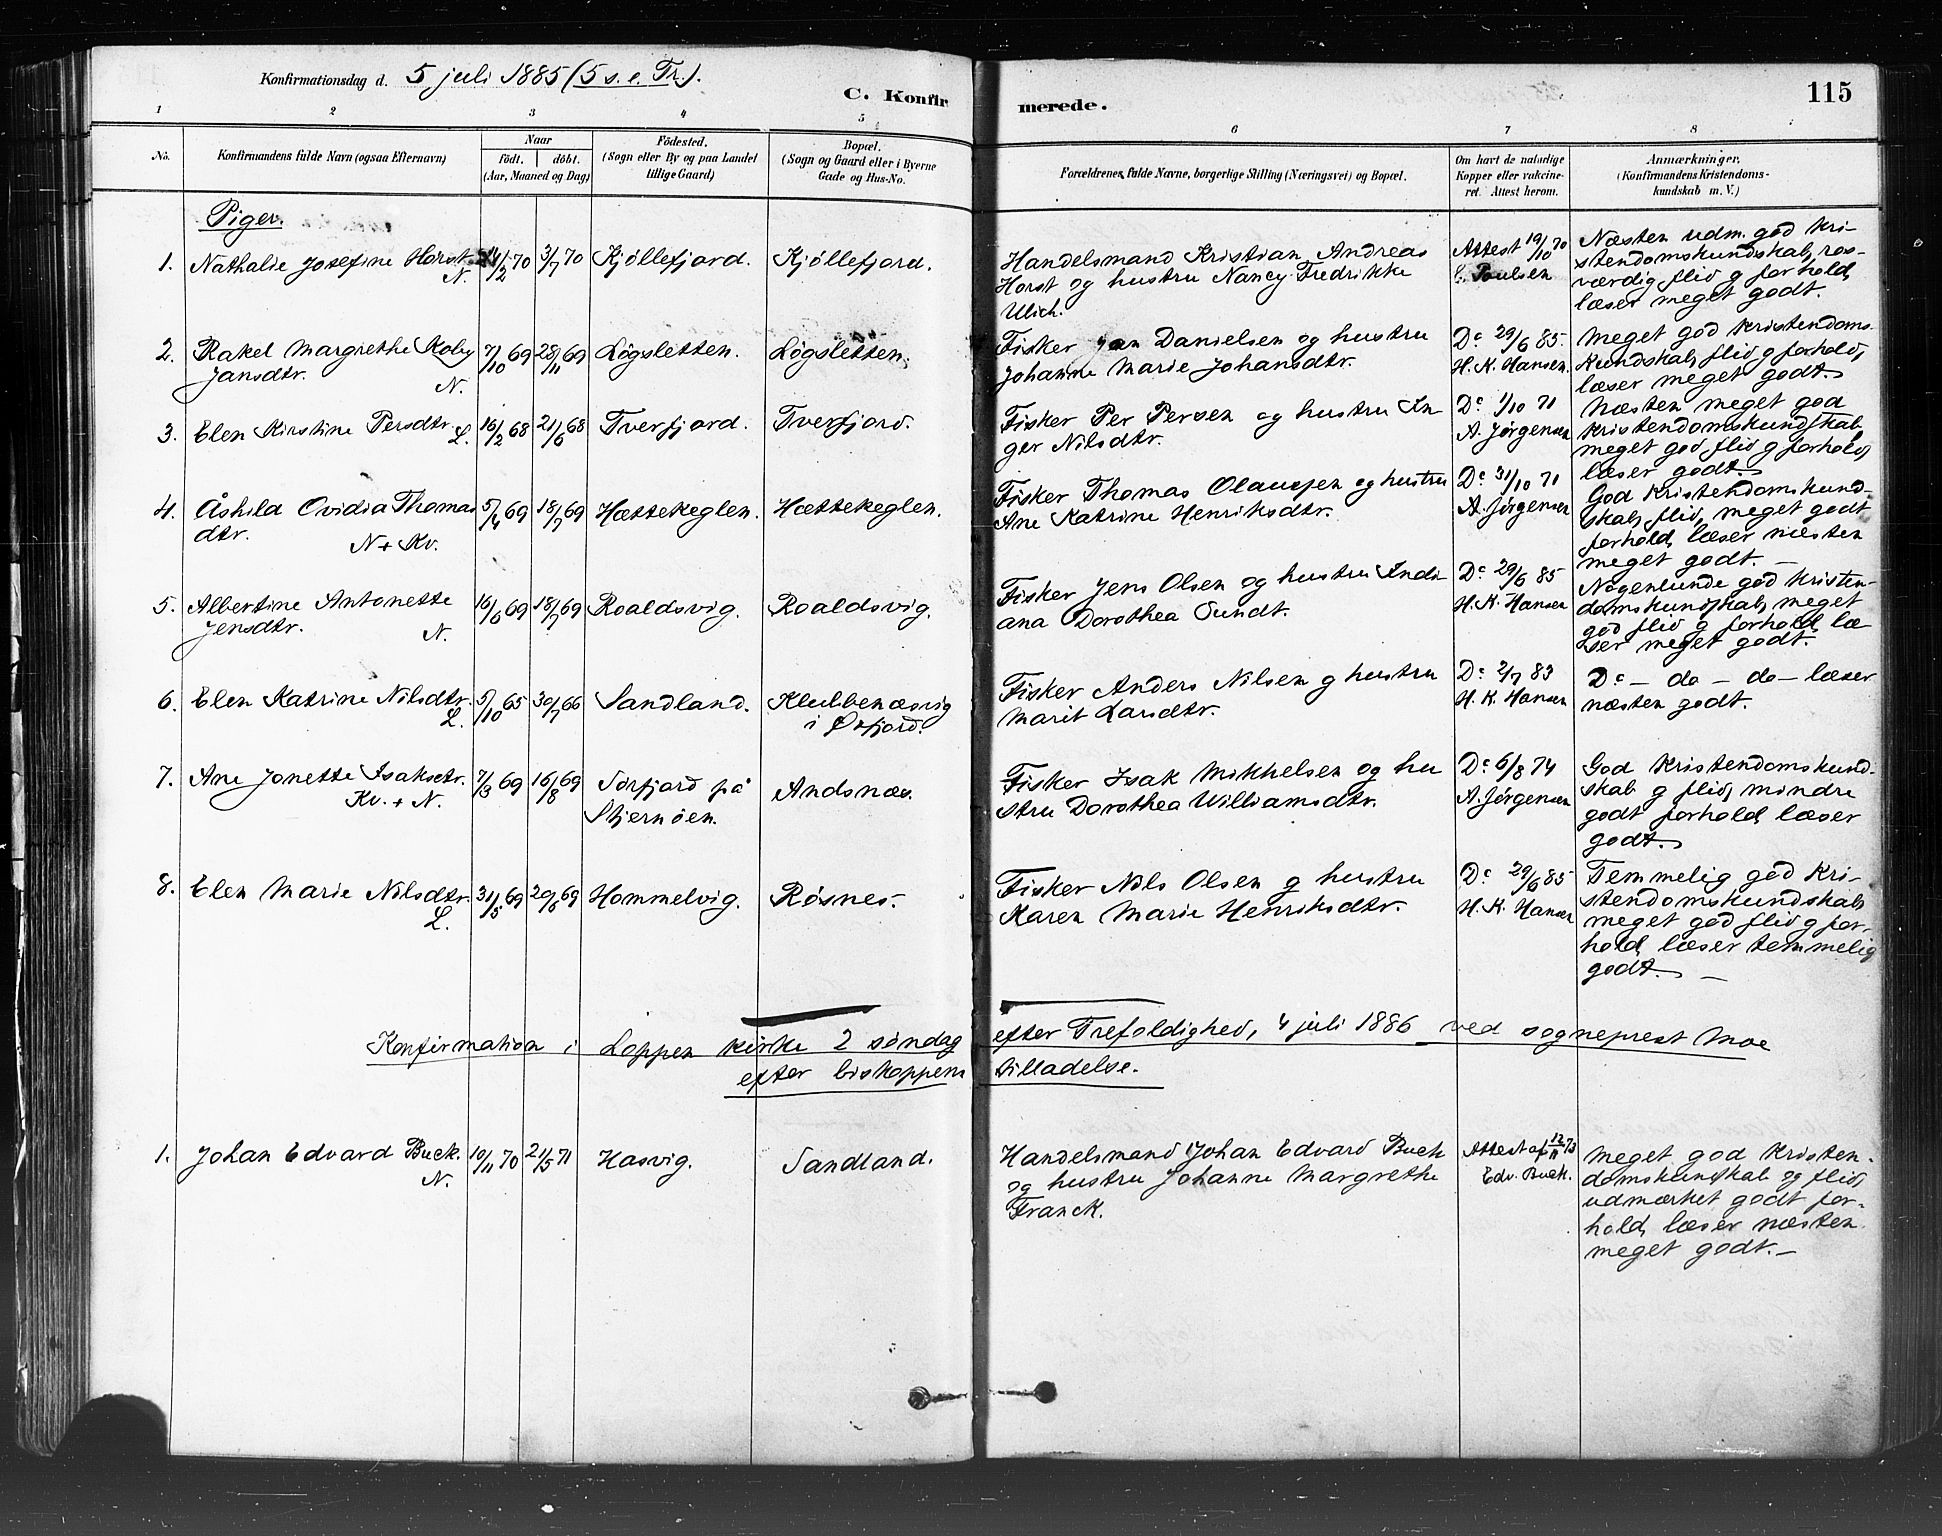 Konfirmationsdag d. 5 juli 1885 (5 s. e. Tr.).
C. Konfir merede.
115
1 2 3 4 5 6 7 8
No.
Konfirmandens fulde Navn (ogsaa Efternavn)
Naar
födt. döbt.
(Aar, Maaned og Dag)
Födested.
(Sogn eller By og paa Landet
tillige Gaard)
Bopæl.
(Sogn og Gaard eller i Byerne
Gade og Hus-No.
Forældrenes fulde Navne, borgerlige Stilling (Næringsvei) og Bopæl.
Om havt de naturlige
Kopper eller vakcine-
ret. Attest herom.
Anmærkninger.
(Konfirmandens Kristendoms-
kundskab m. V.)
Piger.
1. Nathalie Josefine Horst
N.
/2 70 3/7 70 Kjøllefjord. Kjøllefjord.
Handelsmand Kristian Andreas
Horst og hustru Nancy Fredrikke
Ulich.
Attest 19/10 70
Poulsen
Næsten udm. god Kri-
stendomskundskab, ros-
værdig flid g forhold,
læser meget godt.
2. Rakel Margrethe Koby
Jansdtr.
N.
7/10 69 28/11 69 Løgsletten. Løgsletten.
Fisker Jan Danielsen og hustru
Johanne Marie Johansdtr.
Do 29/6 85.
H. K. Hansen.
Meget god Kristendoms-
kundskab, flid g forhold,
læser meget godt.
3. Elen Kirstine Persdtr. L.
16/2 68 21/6 68 Tverfjord. Tverfjord.
Fisker Per Persen og hustru In
ger Nilsdtr.
Do 1/10 71
A. Jørgensen
Næsten meget god
Kristendomskundskab,
meget god flid g forhold,
læser godt.
4. Åshild Ovidia Thomas
dtr.
N + Kv.
5/4 69 18/7 69 Hættekeglen. Hættekeglen.
Fisker Thomas Olaussen og hustru
Ane Katrine Henriksdtr.
Do 31/10 71
A. Jørgensen
God Kristendomskund-
skab, flid, meget godt
forhold, læser næsten
meget godt. —
5. Albertine Antonette
Jensdtr.
N.
16/6 69 18/7 69 Roaldsvig. Roaldsvig.
Fisker Jens Olsen og hustru Indi
ana Dorothea Sundt.
Do 29/6 85
H. K. Hansen
Nogenlunde god Kristen-
domskundskab, meget
god flid g forhold, læ
ser meget godt.
6. Elen Katrine Nilsdtr.
L.
5/10 65 30/7 66 Sandland. Klubbenæsvig
i Øxfjord.
Fisker Anders Nilsen g hustru
Marit Larsdtr.
Do 2/7 83
H. K. Hansen
Do — do — do — læser
næsten godt.
7. Ane Jonette Isaksdtr.
Kv. + N.
7/3 69 16/8 69 Sørfjord på
Stjernøen.
Andsnæs.
Fisker Isak Mikkelsen og hu
stru Dorothea Williamsdtr.
Do 6/8 74
A. Jørgensen
God Kristendomskund-
skab g flid, mindre
godt forhold, læser
godt.
8. Elen Marie Nilsdtr.
L.
31/5 69 20/6 69 Hommelvig. Røsnes.
Fisker Nils Olsen g hustru
Karen Marie Henriksdtr.
Do 29/6 85
H. K. Hansen
Temmelig god Kri-
stendomskundskab,
meget god flid g for-
hold, læser temmelig
godt. —
Konfirmation i Loppen kirke 2 søndag efter Trefoldighed, 4 juli 1886 ved sogneprest Moe
efter biskoppens tilladelse.
1. Johan Edvard Buck.
N.
10/11 70 21/5 71 Hasvig. Sandland.
Handelsmand Johan Edvard Buck
og hustru Johanne Margrethe
Franck.
Attest af 12/11 73
Edv. Buck.
Meget god Kristen-
domskundskab og flid,
udmærket godt for-
hold, læser næsten
meget godt. —